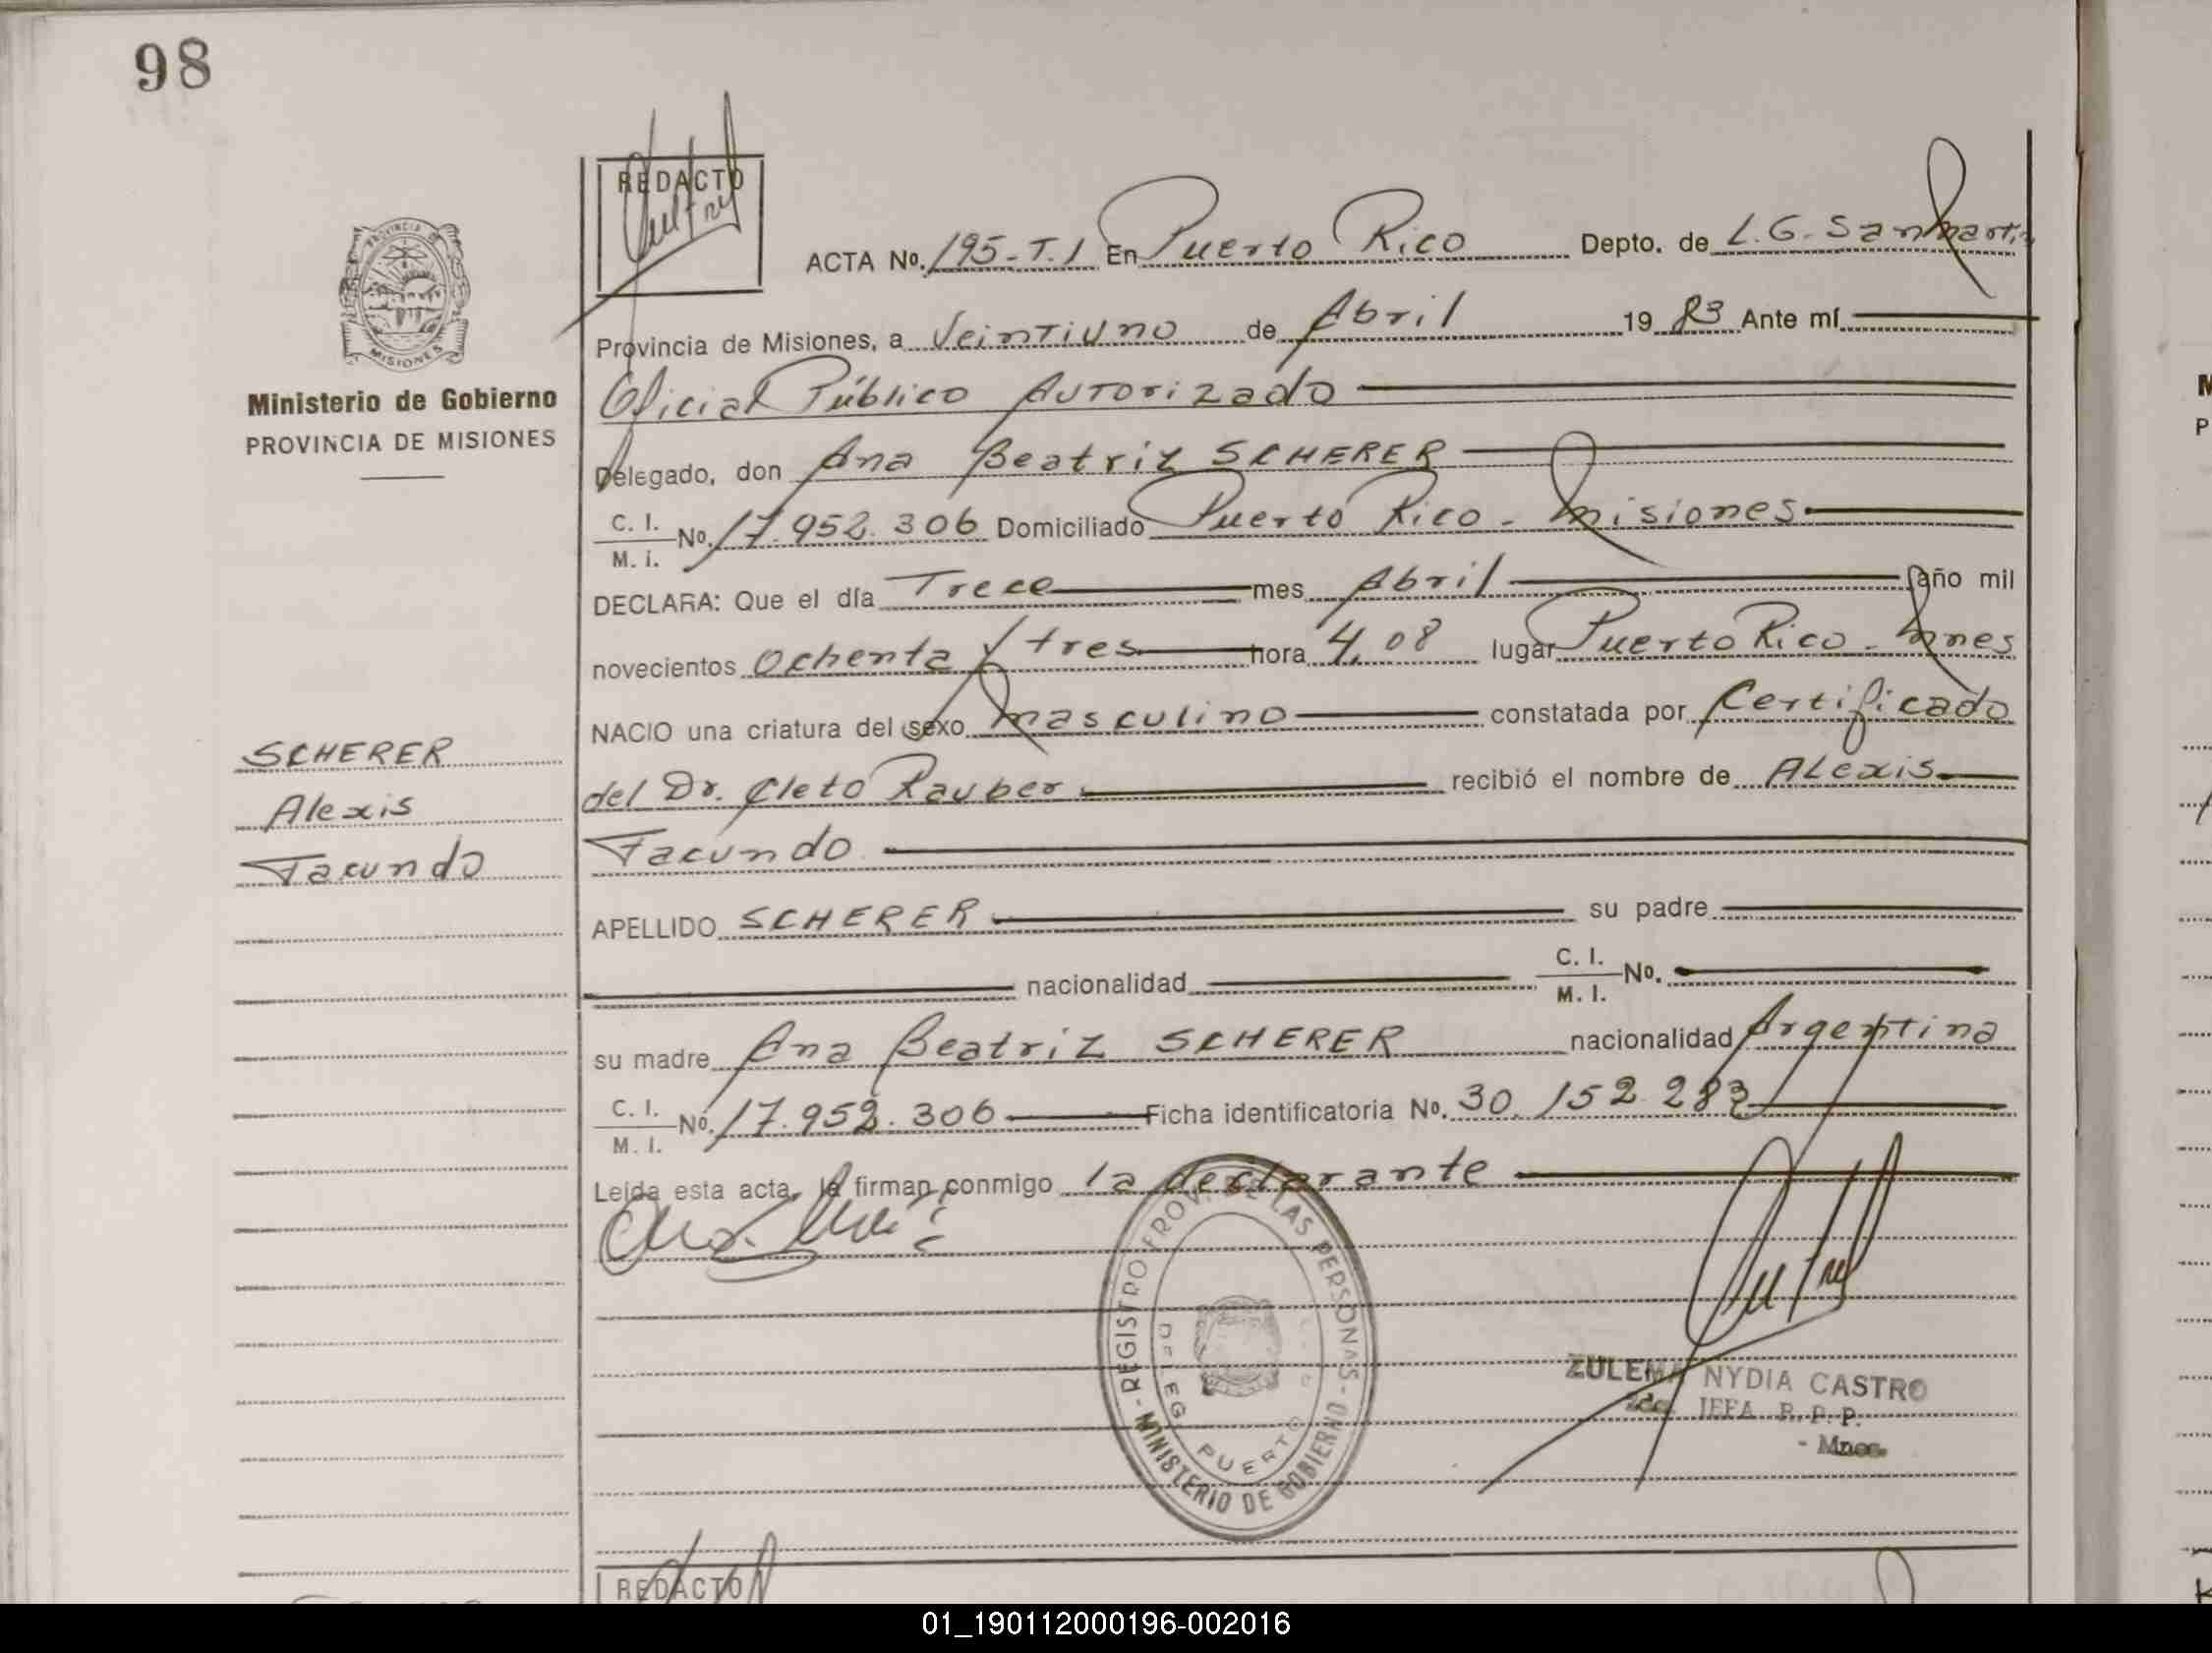 98
REDACTO
ACTA No. 195-T.I En Puerto Rico Depto. de L.G. San Martin
Provincia de Misiones, a Veintiuno de Abril 19 83 Ante mí
Oficial Público Autorizado
Delegado, don Ana Beatriz SCHERER
C. I. / M. I. No. 17.952.306 Domiciliado Puerto Rico - Misiones
DECLARA: Que el día Trece mes Abril año mil
novecientos ochenta y tres hora 4,08 lugar Puerto Rico - Mnes
NACIO una criatura del sexo masculino constatada por Certificado
del Dr. Cleto Rauber recibió el nombre de Alexis
Facundo
APELLIDO SCHERER su padre
nacionalidad C. I. / M. I. No.
su madre Ana Beatriz SCHERER nacionalidad Argentina
C. I. / M. I. No. 17.952.306 Ficha identificatoria No. 30.152.283
Leida esta acta, la firman conmigo la declarante
PROVINCIA DE
MISIONES
Ministerio de Gobierno
PROVINCIA DE MISIONES
SCHERER
Alexis
Facundo
REGISTRO PROV. DE LAS PERSONAS - MINISTERIO DE GOBIERNO -
DELEG. PUERTO
ZULEMA NYDIA CASTRO
2da. JEFA R.P.P.
- Mnes.
REDACTO
01_190112000196-002016